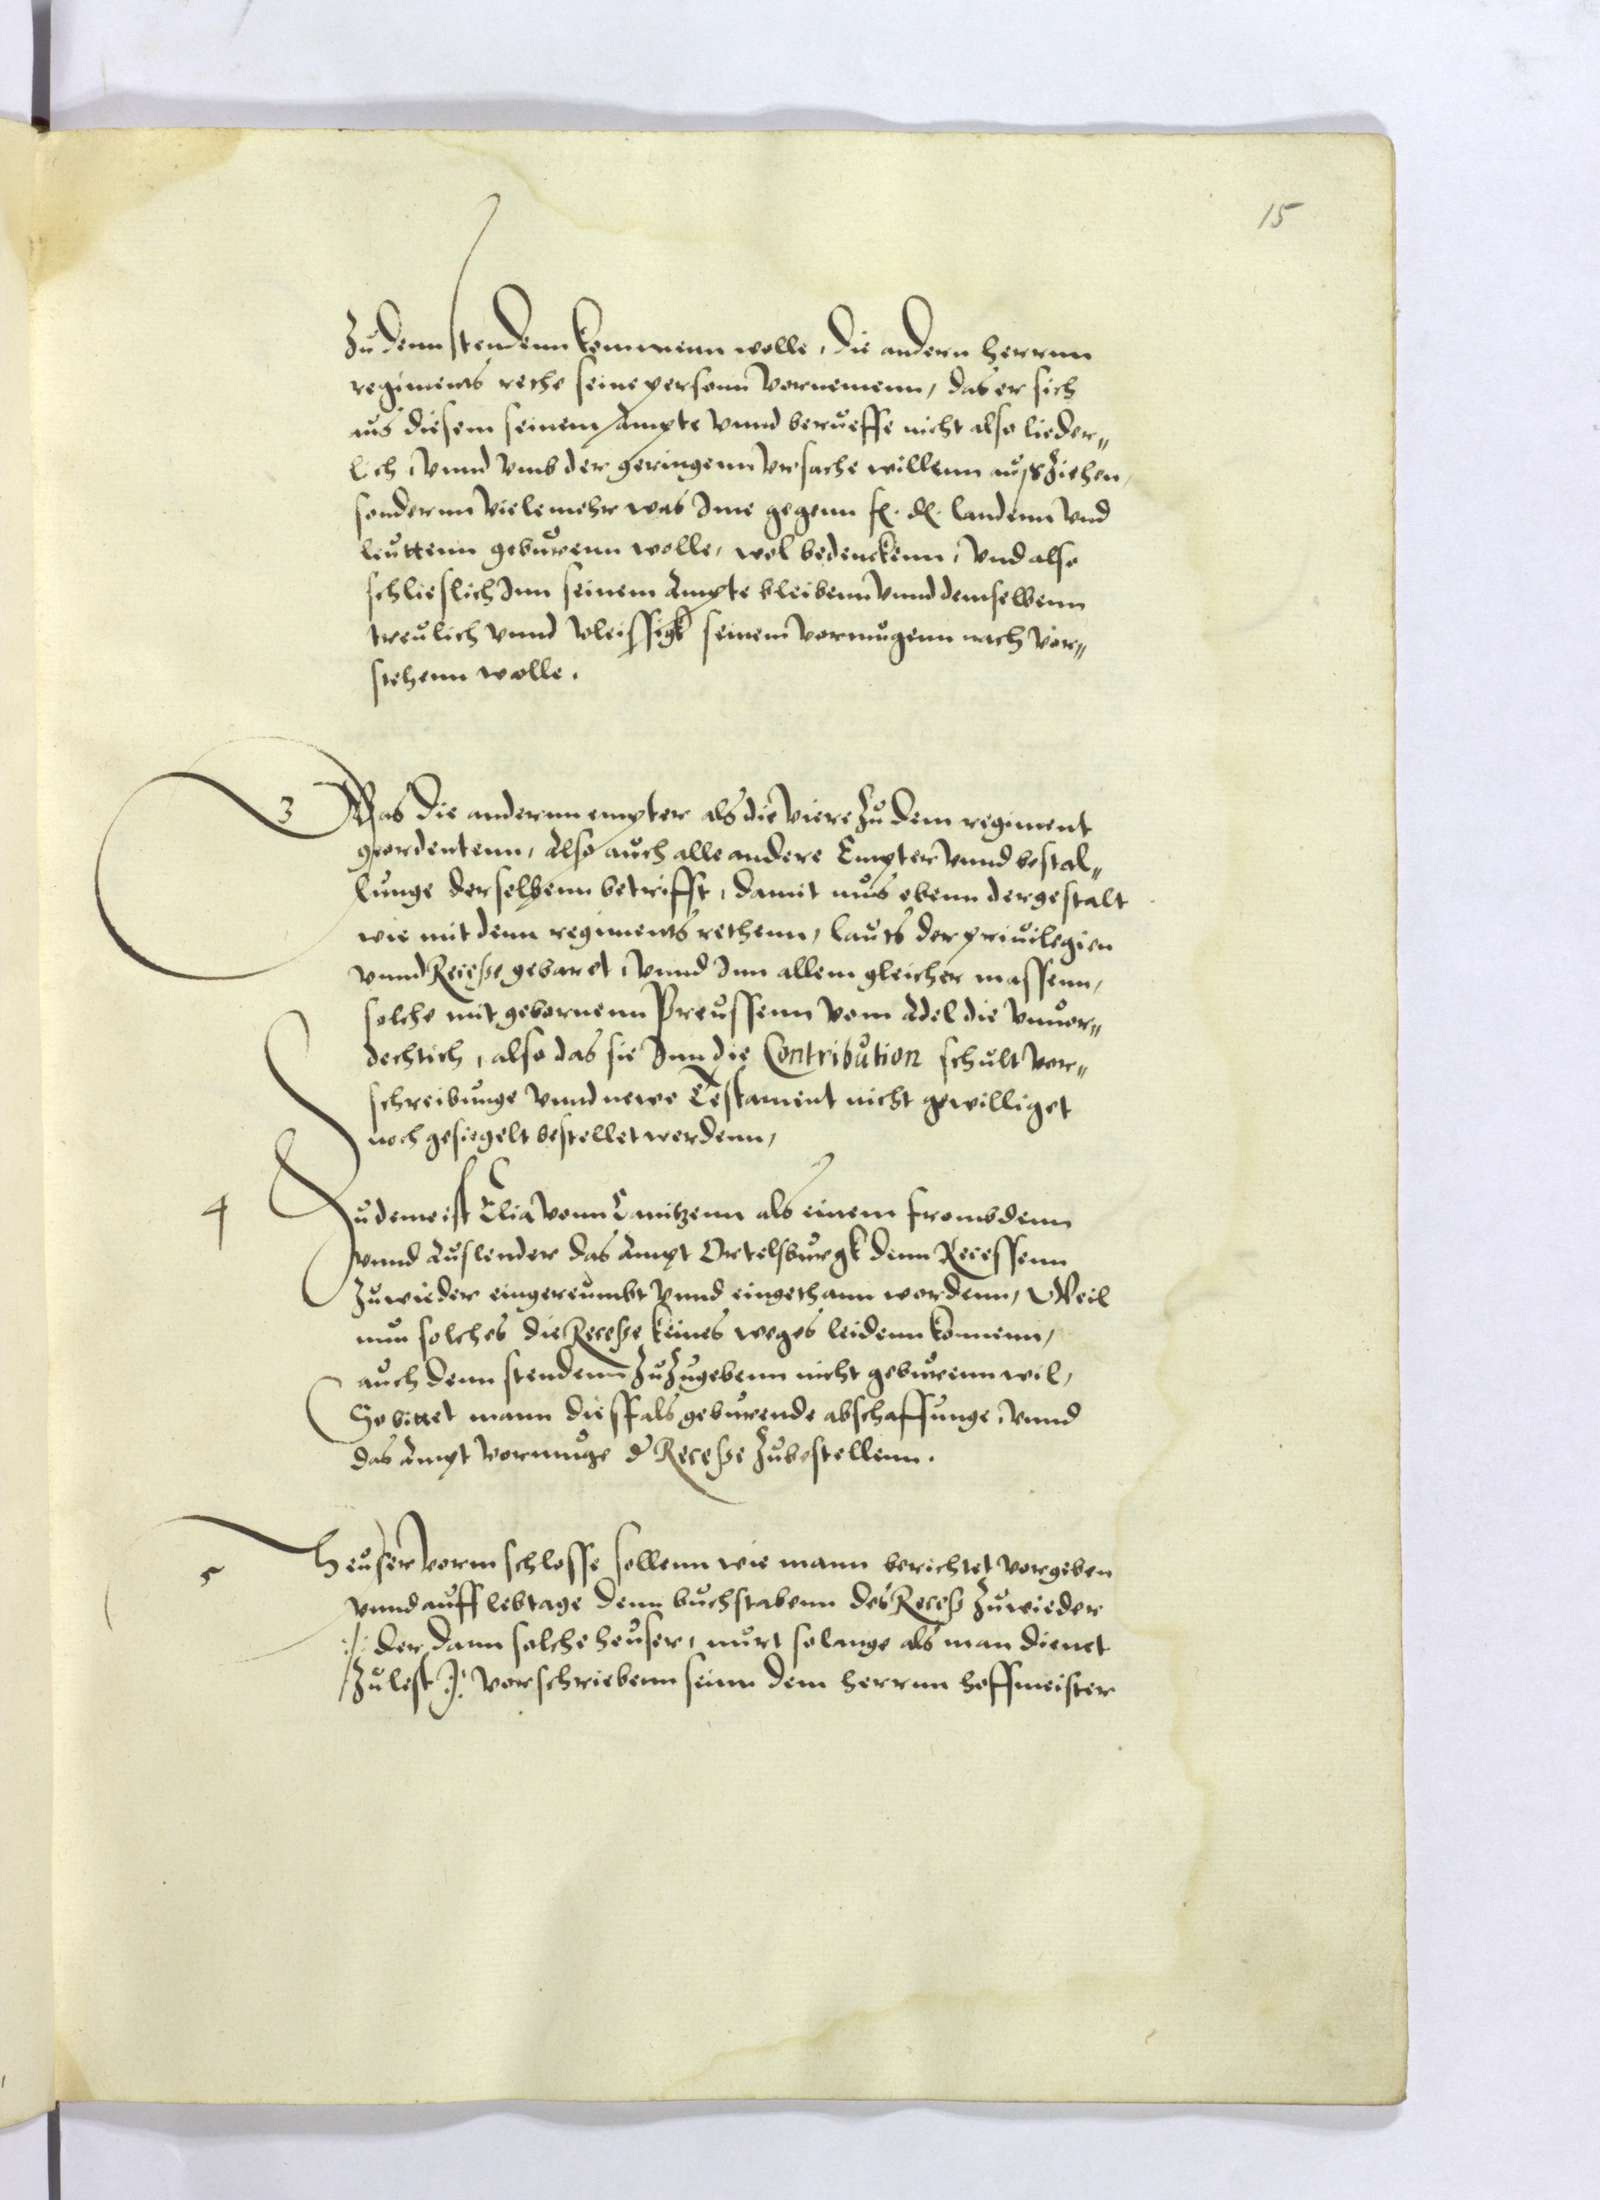 15
Zu denn stendenn kommenn wolle, die andern herrnn
regiments rethe seine personn vornemenn, das er sich
aus diesem seinem Ampte vnnd berueffe nicht also lieder„
lich, vnnd vmb der geringenn vrsache willenn ausziehen,
sondernn viele mehr was Ime gegenn f. d. landenn vnd
leuttenn geburenn wolle, wol bedenckenn, vnd also
schlieslich Inn seinem Ampte bleibenn vnnd demselbenn
treulich vnnd vleissigk seinem vormugenn nach vor„
stehenn wolle.
3 Was die andernn empter als die viere zu dem regiment
geordentenn, Also auch alle andere Empter vnnd bestal„
lunge derselbenn betrifft, damit mus ebenn dergestalt
wie mit denn regiments rethenn, lauts der priuilegien
vnnd Recesse gebaret, vnnd Inn allem gleicher massenn,
solche mit gebornenn Preussenn vom Adel die vnuor„
dechtich, also das sie Inn die Contribution schult vor„
schreibunge vnnd newe Testament nicht gewilliget
noch gesiegelt bestellet werdenn,
4 Zudeme ist Elia vonn Canitzenn als einem frombdenn
vnnd Auslender das Ampt Ortelsburgk denn Recessenn
zuwieder eingereumbt vnnd eingethann wordenn, Weil
nun solches die Recesse keines weges leidenn konnenn,
auch denn stendenn zuzugebenn nicht geburenn wil,
So bittet mann diesfals geburende abschaffunge, vnnd
das Ampt vormuge d Recesse zubestellenn.
5 Heuser vorm schlosse sollenn wie mann berichtet vorgeben
vnnd auff lebtage denn buchstabenn des Recess zuwieder
:/: der dann solche heuser, nurt so lange als man dienet
zulest :/: vorschriebenn seinn dem herrnn hoffmeister